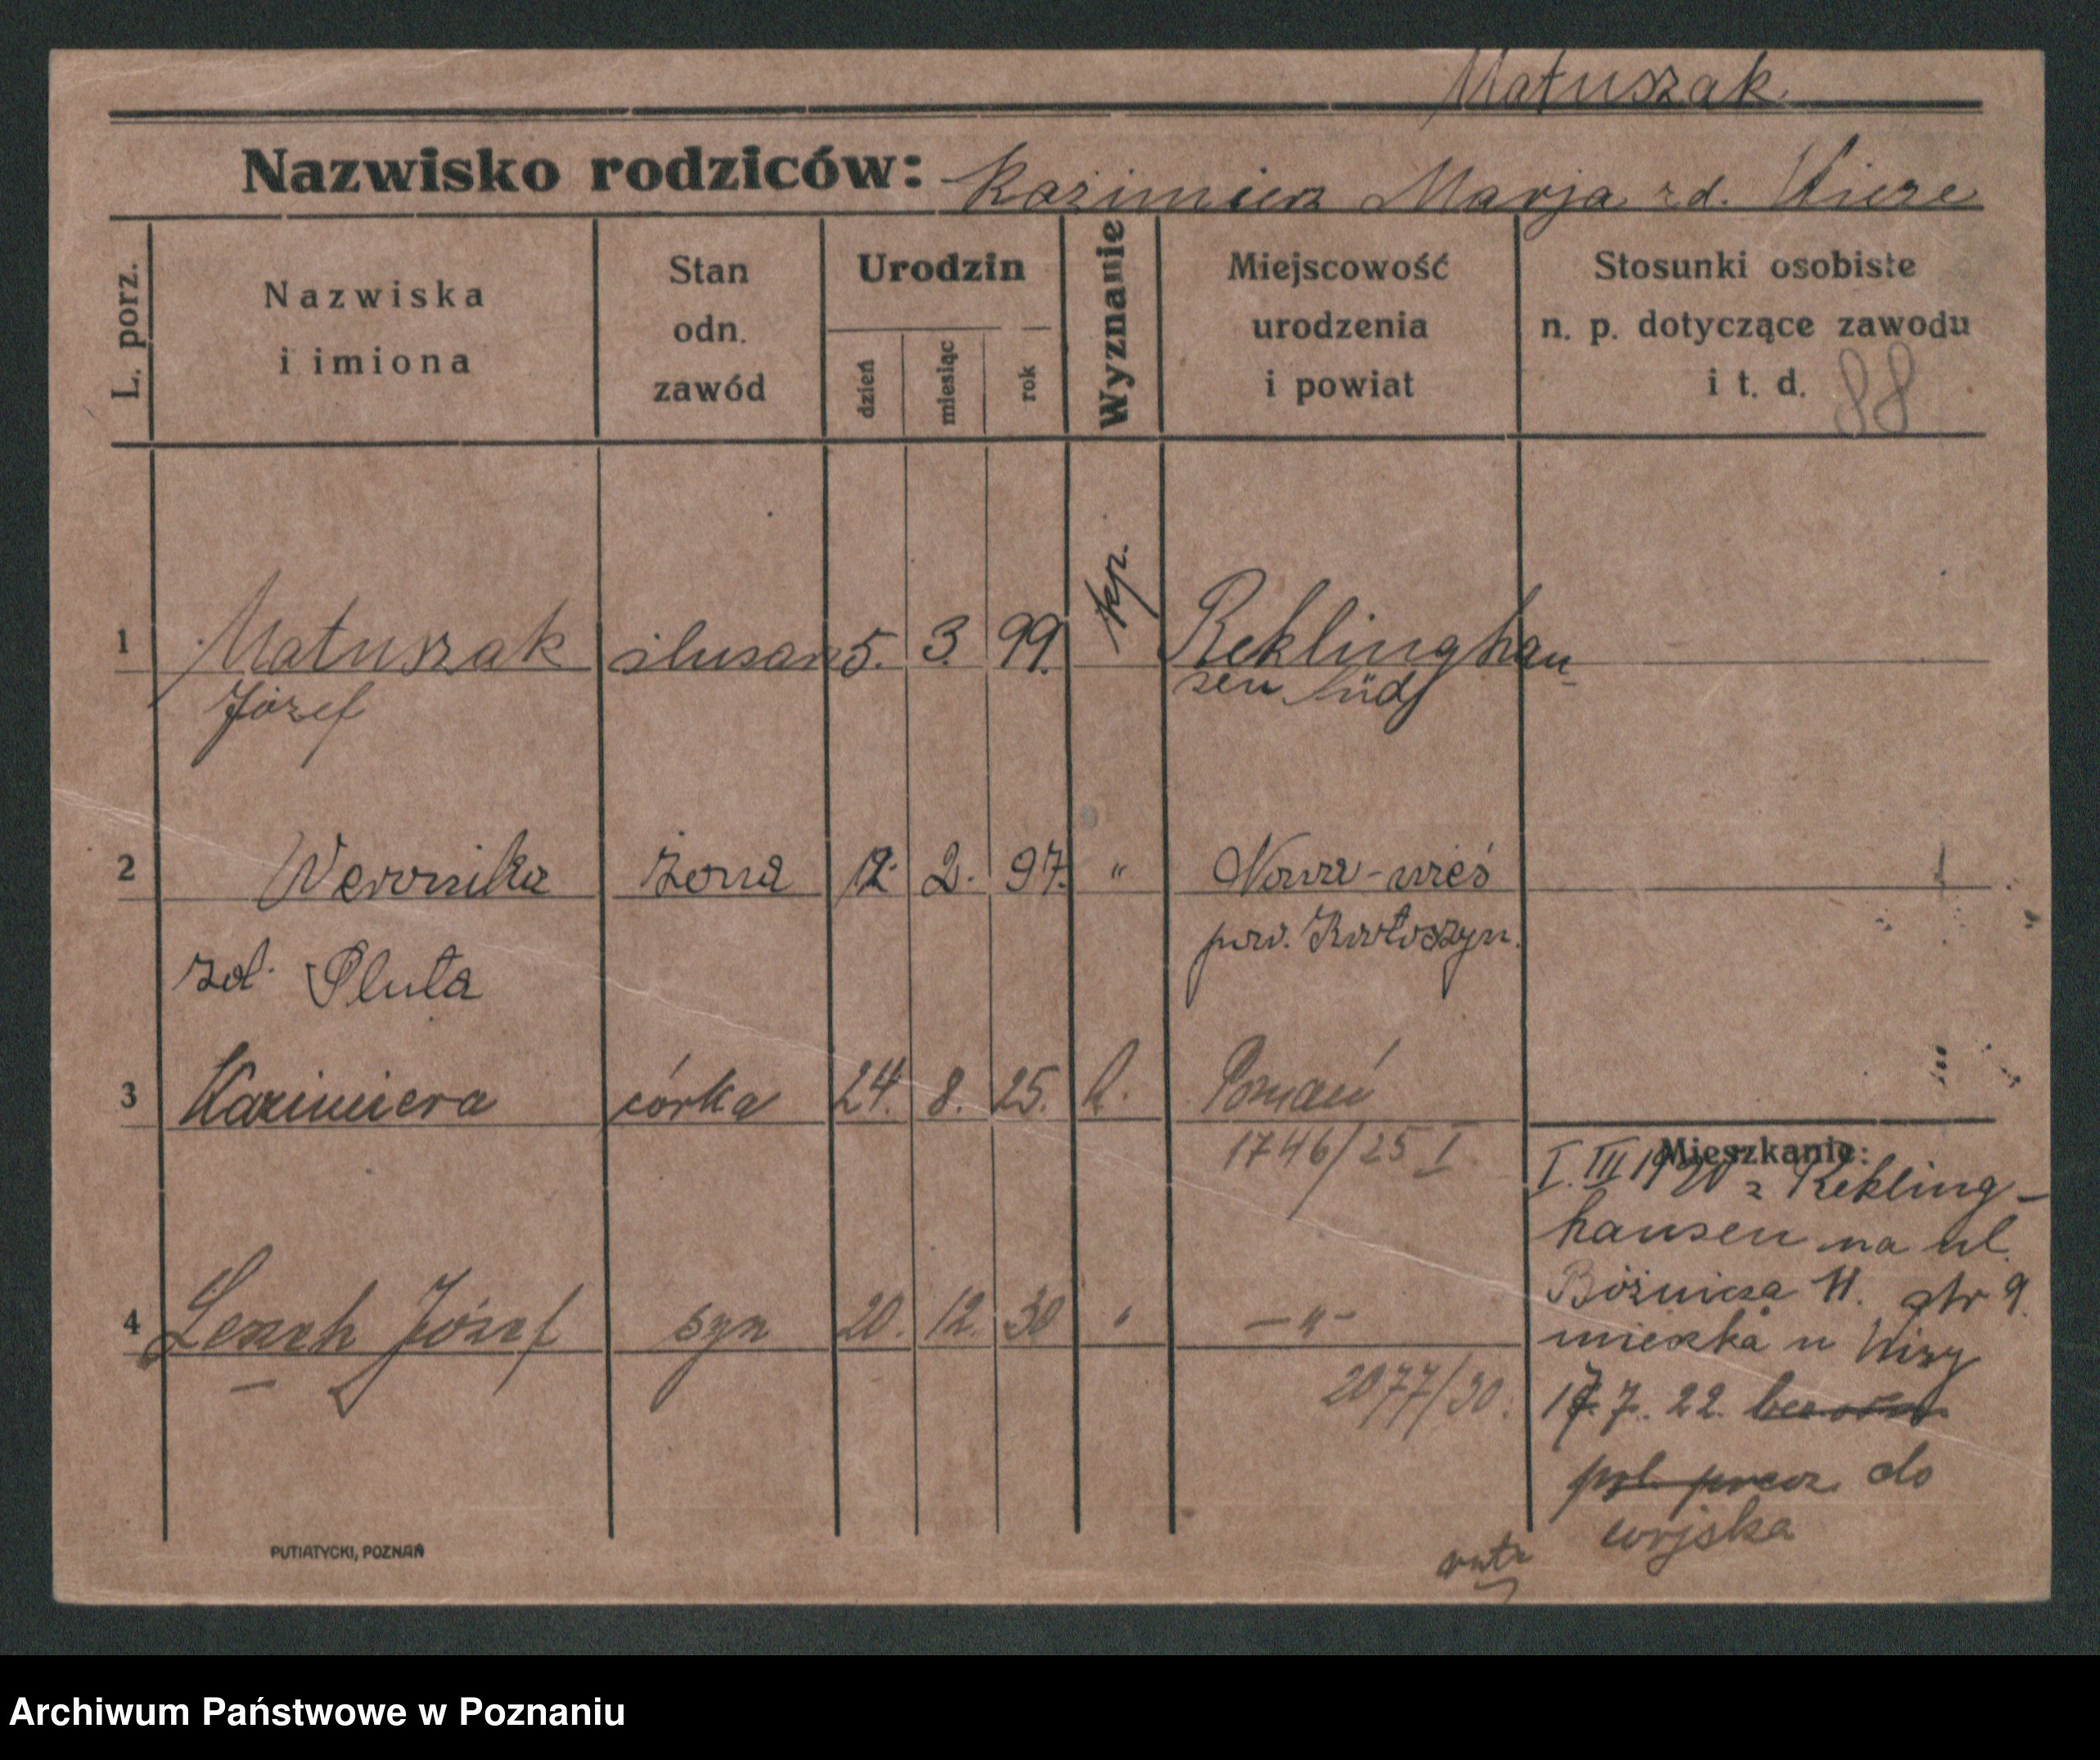 Matuszak
Nazwisko rodziców: Kazimierz Marja zd.
L. porz.
Nazwiska
i imiona
Stan
odn.
zawód
Urodzin
dzień
miesiąc
rok
Wyznanie
Miejscowość
urodzenia
i powiat
Stosunki osobiste
n. p. dotyczące zawodu
i t. d. 88
1 Matuszak ślusarz 5. 3. 99. kp. Reklinghau-
Józef sen Süd
2 Weronika żona 12. 2. 97. " Nowa-wieś
zd. Pluta pow. Krotoszyn.
3 Kazimiera córka 24. 8. 25. k. Poznań
1746/25 I
4 Leszek Józef syn 20. 12. 30 " —"—
2077/30.
Mieszkanie:
I. III 1920 z Rekling-
hausen na ul.
Bóżnicza 11. ptr 9.
mieszka u
17. 7. 22.
do
wojska
PUTIATYCKI, POZNAŃ
Archiwum Państwowe w Poznaniu